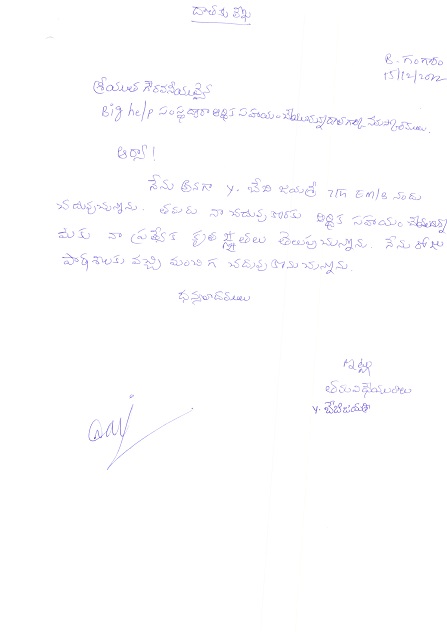 దాతకు లేఖ
B. గంగారం
15/12/2022
శ్రీయుత గౌరవనీయులైన
Big help సంస్థ ద్వారా ఆర్థిక సహాయం చేయుచున్న దాత గారికి నమస్కారములు.
ఆర్యా!
నేను అనగా y. బేబి జయశ్రీ 7th Em/s నందు
చదువుచున్నాను. తమరు నా చదువు కొరకు ఆర్థిక సహాయం చేయుచున్నం
దుకు నా ప్రత్యేక కృతజ్ఞతలు తెలుపుచున్నాను. నేను రోజు
పాఠశాలకు వచ్చి మంచిగ చదువు కొనుచున్నాను.
ధన్యవాదములు
ఇట్లు
తమ విధేయురాలు
y. బేబిజయశ్రీ